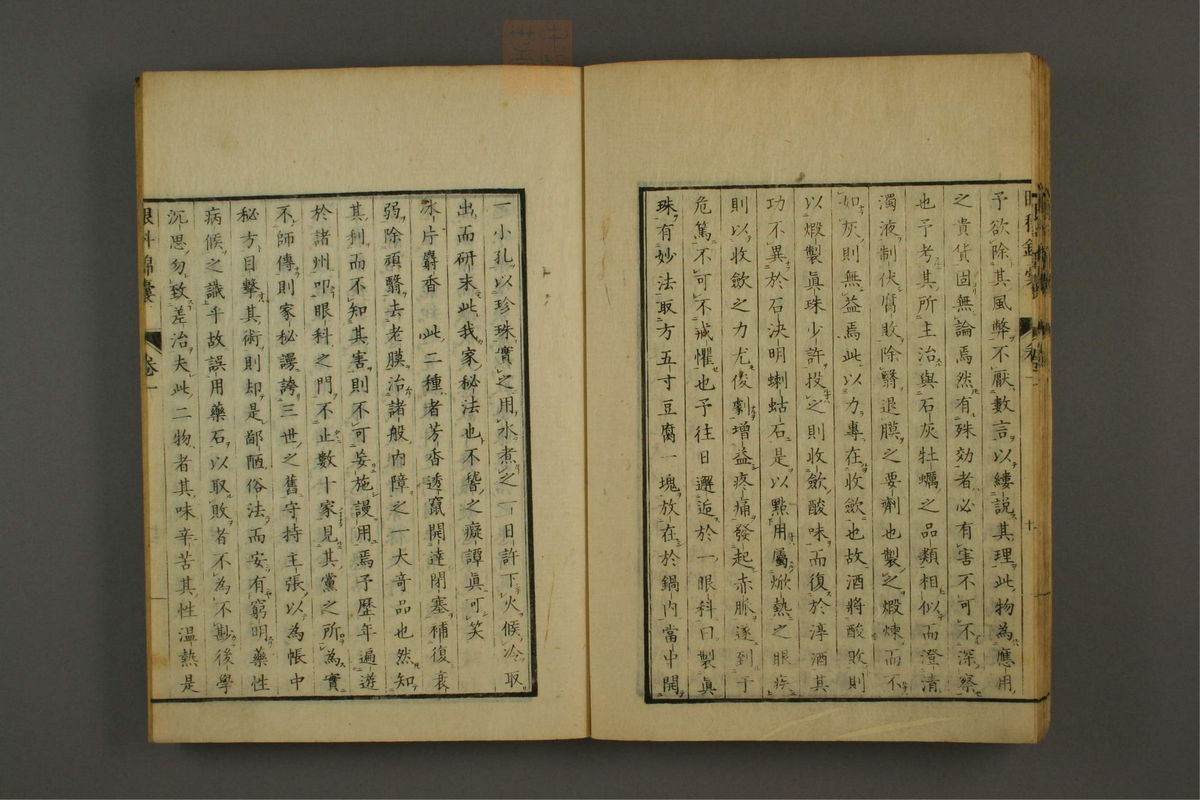 予欲除其風弊不厭數言以縷說其理此物為應用
之貴貨固無論焉然有殊効者必有害不可不深察
也予考其所主治與石灰牡蠣之品類相似而澄清
濁液制伏腐敗除翳退膜之要劑也製之煅煉而不
如灰則無益焉此以力專在收歛也故酒將酸敗則
以煅製眞珠少許投之則收歛酸味而復於淳酒其
功不異於石決明蜊蛄石是以點用屬焮熱之眼疾
則以收歛之力尤俊劇增益疼痛發起赤脈遂到于
危篤不可不戒懼也予往日邂逅於一眼科曰製眞
珠有妙法取方五寸豆腐一塊放在於鍋內當中開
一小孔以珍珠實之用水煮之一日許下火候冷取
出而研末此我家秘法也不啻之癡譚眞可笑
氷片麝香 此二種者芳香透竄開達閉塞補復衰
弱除頑翳去老膜治諸般內障之一大奇品也然知
其利而不知其害則不可妄施謾用焉予歷年遍遊
於諸州叩眼科之門不止數十家見其黨之所為實
不師傳則家秘謾誇三世之舊守持主張以為帳中
秘方目擊其術則却是鄙陋俗法而安有窮明藥性
病候之識乎故誤用藥石以取敗者不為不尠後學
沉思勿致差治夫此二物者其味辛苦其性溫熱是
眼科錦囊 卷一